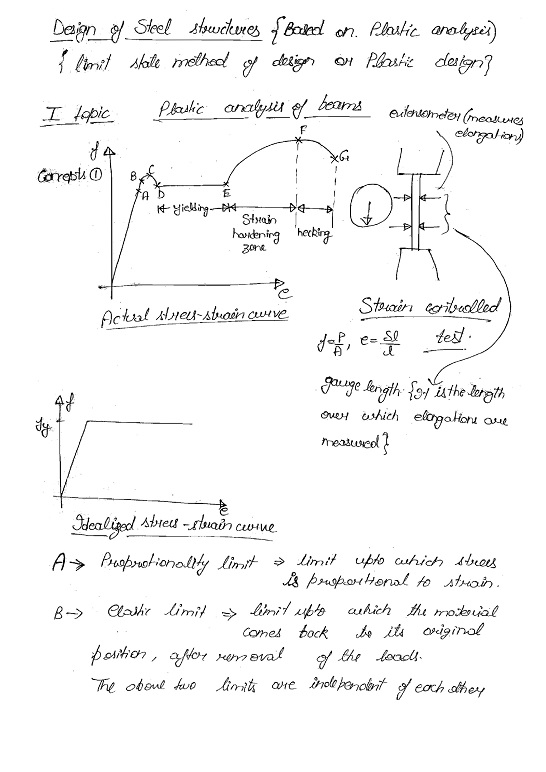 Design of Steel structures {Based on Plastic analysis}
{ limit state method of design or Plastic design}
I topic Plastic analysis of beams
extensometer (measures elongation)
Concepts ①
f
A
B
C
D
E
F
G
yielding
Strain hardening zone
necking
e
Actual stress-strain curve
Strain controlled test.
f=P/A, e=δl/l
gauge length {It is the length
over which elongations are
measured}
f
fy
e
Idealized stress-strain curve
A → Proportionality limit ⇒ limit upto which stress
is proportional to strain.
B → Elastic limit ⇒ limit upto which the material
comes back to its original
position, after removal of the loads.
The above two limits are independent of each other